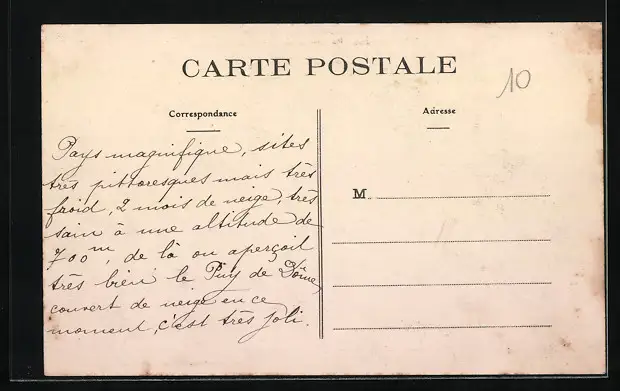 CARTE POSTALE
10
Correspondance
Adresse
Pays magnifique, sites
très pittoresques mais très
froid, 2 mois de neige, très
sain à une altitude de
700m, de là on aperçoit
très bien le Puy de Dôme,
couvert de neige en ce
moment, c'est très joli.
M